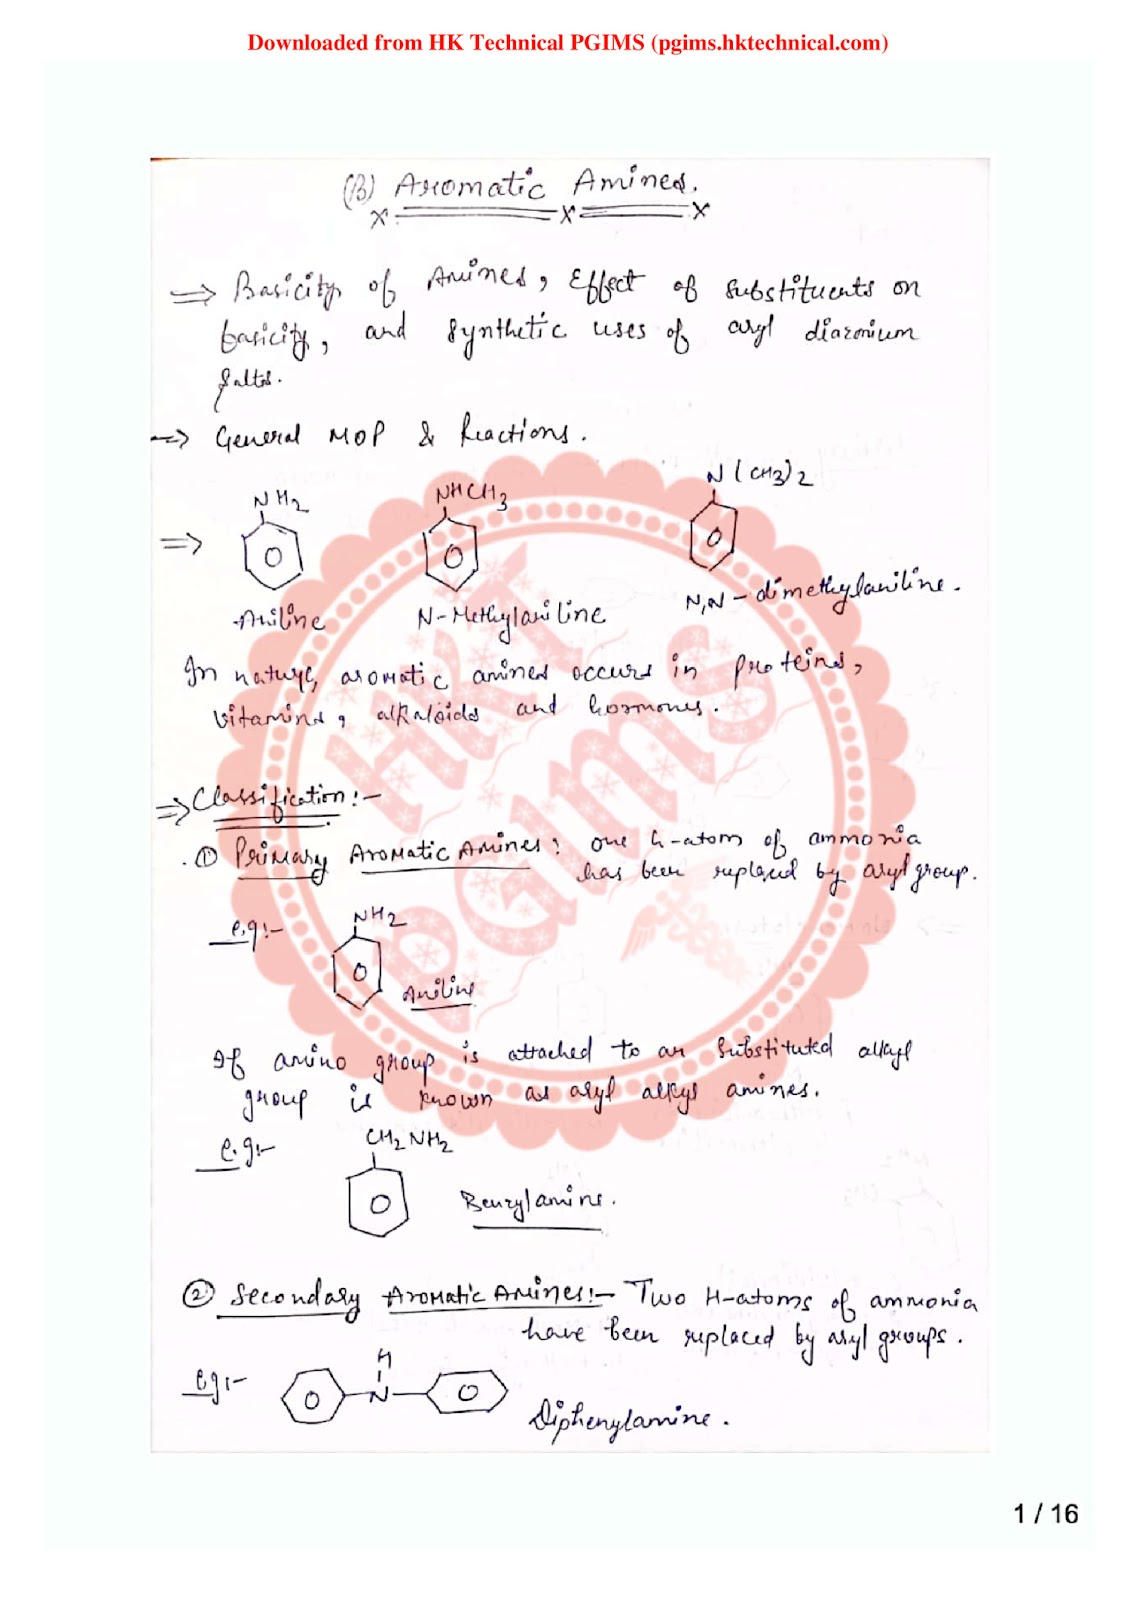 Downloaded from HK Technical PGIMS (pgims.hktechnical.com)
(B) Aromatic Amines.
x x x
⇒ Basicity of Amines, Effect of substituents on
basicity, and synthetic uses of aryl diazonium
salts.
⇒ General MOP & Reactions.
NH2 NHCH3 N(CH3)2
⇒
Aniline N-Methylaniline N,N-dimethylaniline.
In nature, aromatic amines occurs in proteins,
vitamins, alkaloids and hormones.
⇒ Classification:-
① Primary Aromatic Amines: one H-atom of ammonia
has been replaced by aryl group.
e.g:- NH2
Aniline
If amino group is attached to an substituted alkyl
group is known as aryl alkyl amines.
e.g:- CH2NH2
Benzylamine.
② Secondary Aromatic Amines:- Two H-atoms of ammonia
have been replaced by aryl groups.
e.g:- H
N
Diphenylamine.
HKT
PGIMS
1 / 16